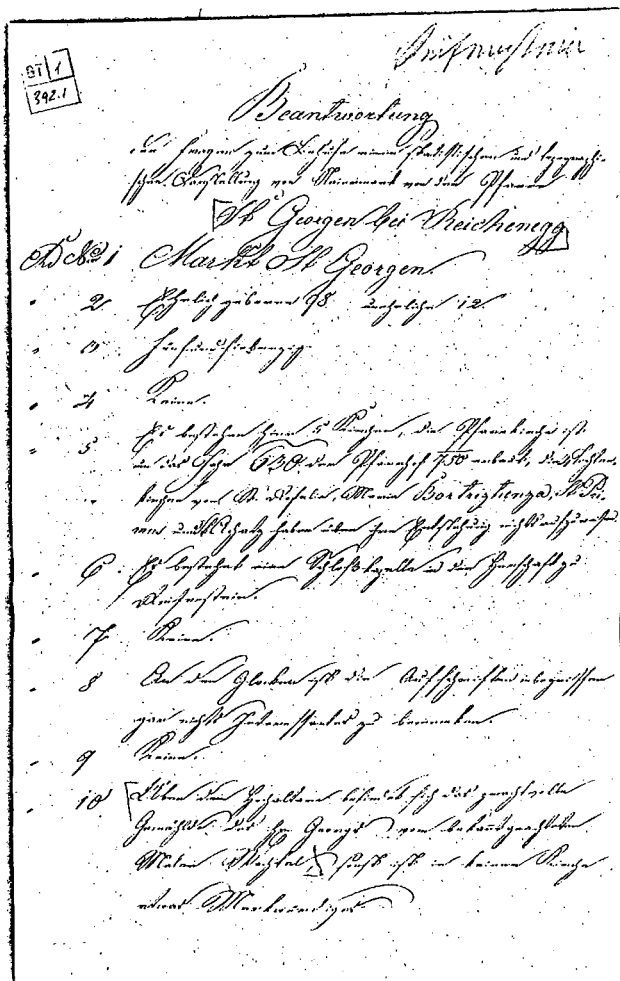 Reifenstein
BT 1
392.1
Beantwortung
der Fragen zum Behufe einer statistischen und topographi-
schen Darstellung von Steiermark von der Pfarre
St Georgen bei Reichenegg
Ad No 1 Markt St Georgen.
" 2 Ehelich geborene 98 uneheliche 12.
" 3 Fünfundsiebenzig.
" 4 Keine.
" 5 Es bestehen hier 5 Kirchen, die Pfarrkirche ist
in das Jahr 1630 der Pfarrhof 750 erbaut, die
" kirchen von St Rosalia, Maria St Pri-
mus und haben über ihre Entstehung nichts aufzuweisen.
" 6. Es bestehet eine Schloßkapelle in der Herrschaft zu
Reifenstein.
" 7 Keine.
" 8 An den Glocken ist die Aufschriften inbegriffen
gar nichts Interessantes zu bemerken.
" 9 Keine.
" 10 Ober dem Hochaltare befindet sich das prachtvolle
Gemählde des Hl Georgs vom
Maler sonst ist in keiner Kirche
etwas Merkwürdiges